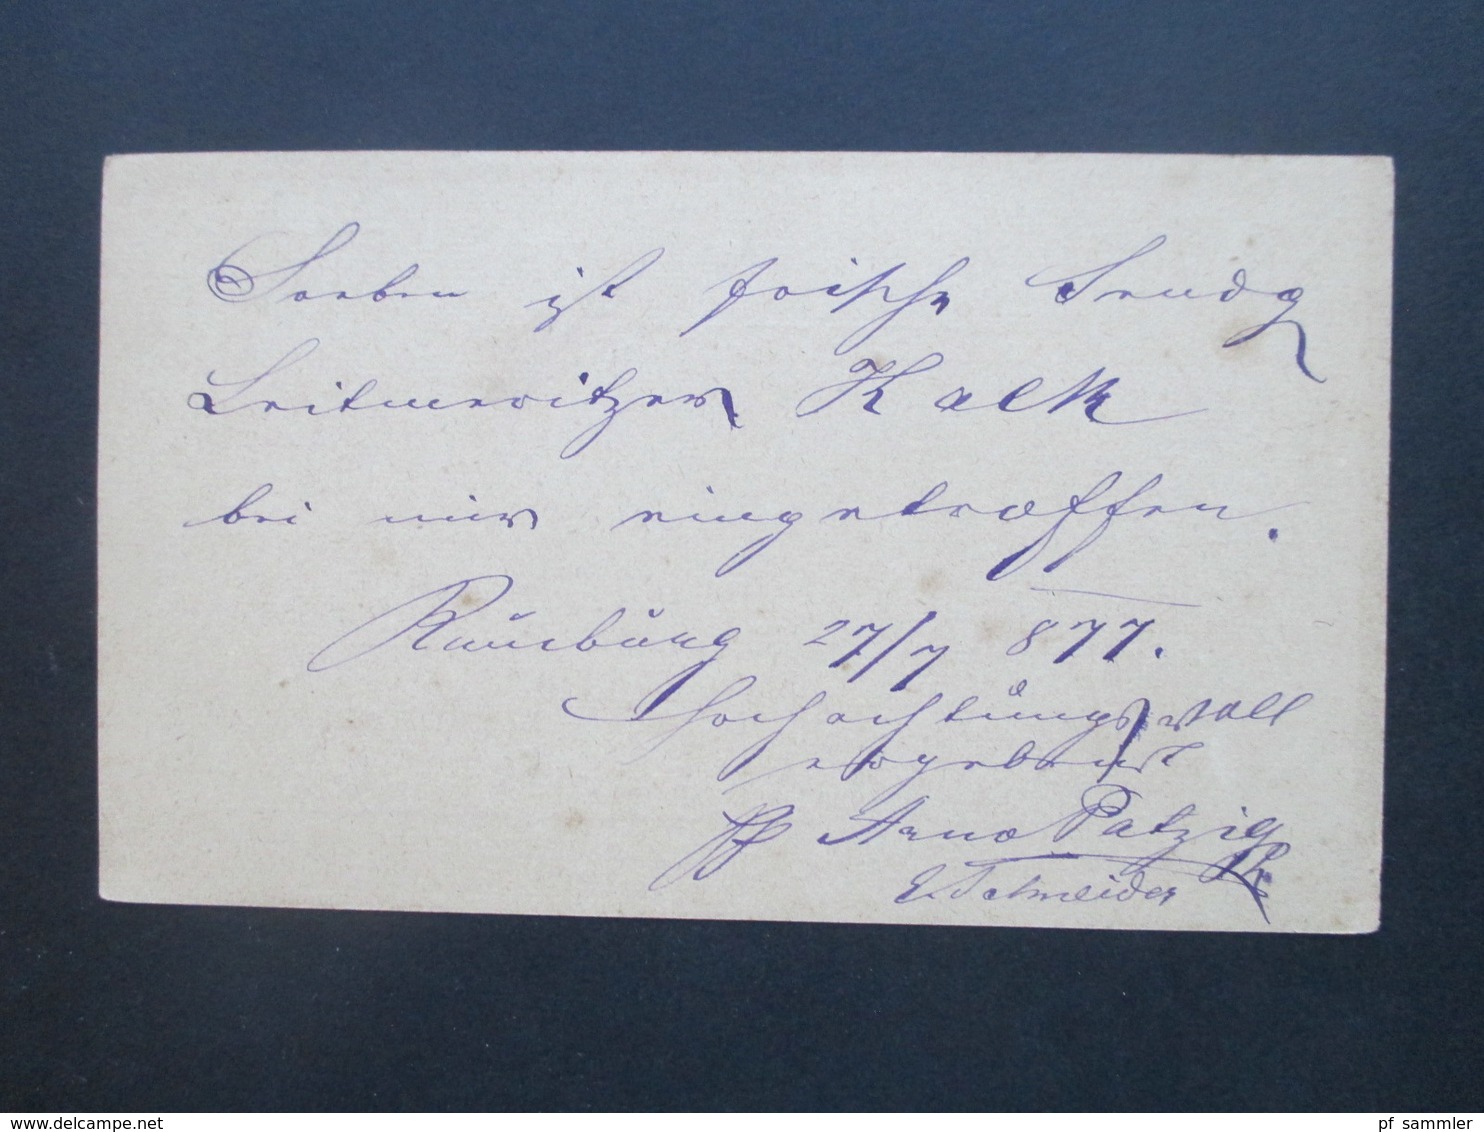 Soeben ist frische Sendg
Leitmeritzer Kalk
bei mir eingetroffen.
Naumburg 27/7 877.
Hochachtungsvoll
ergebenst
pp Arno Patzig
E. Schneider
www.delcampe.net
pf_sammler